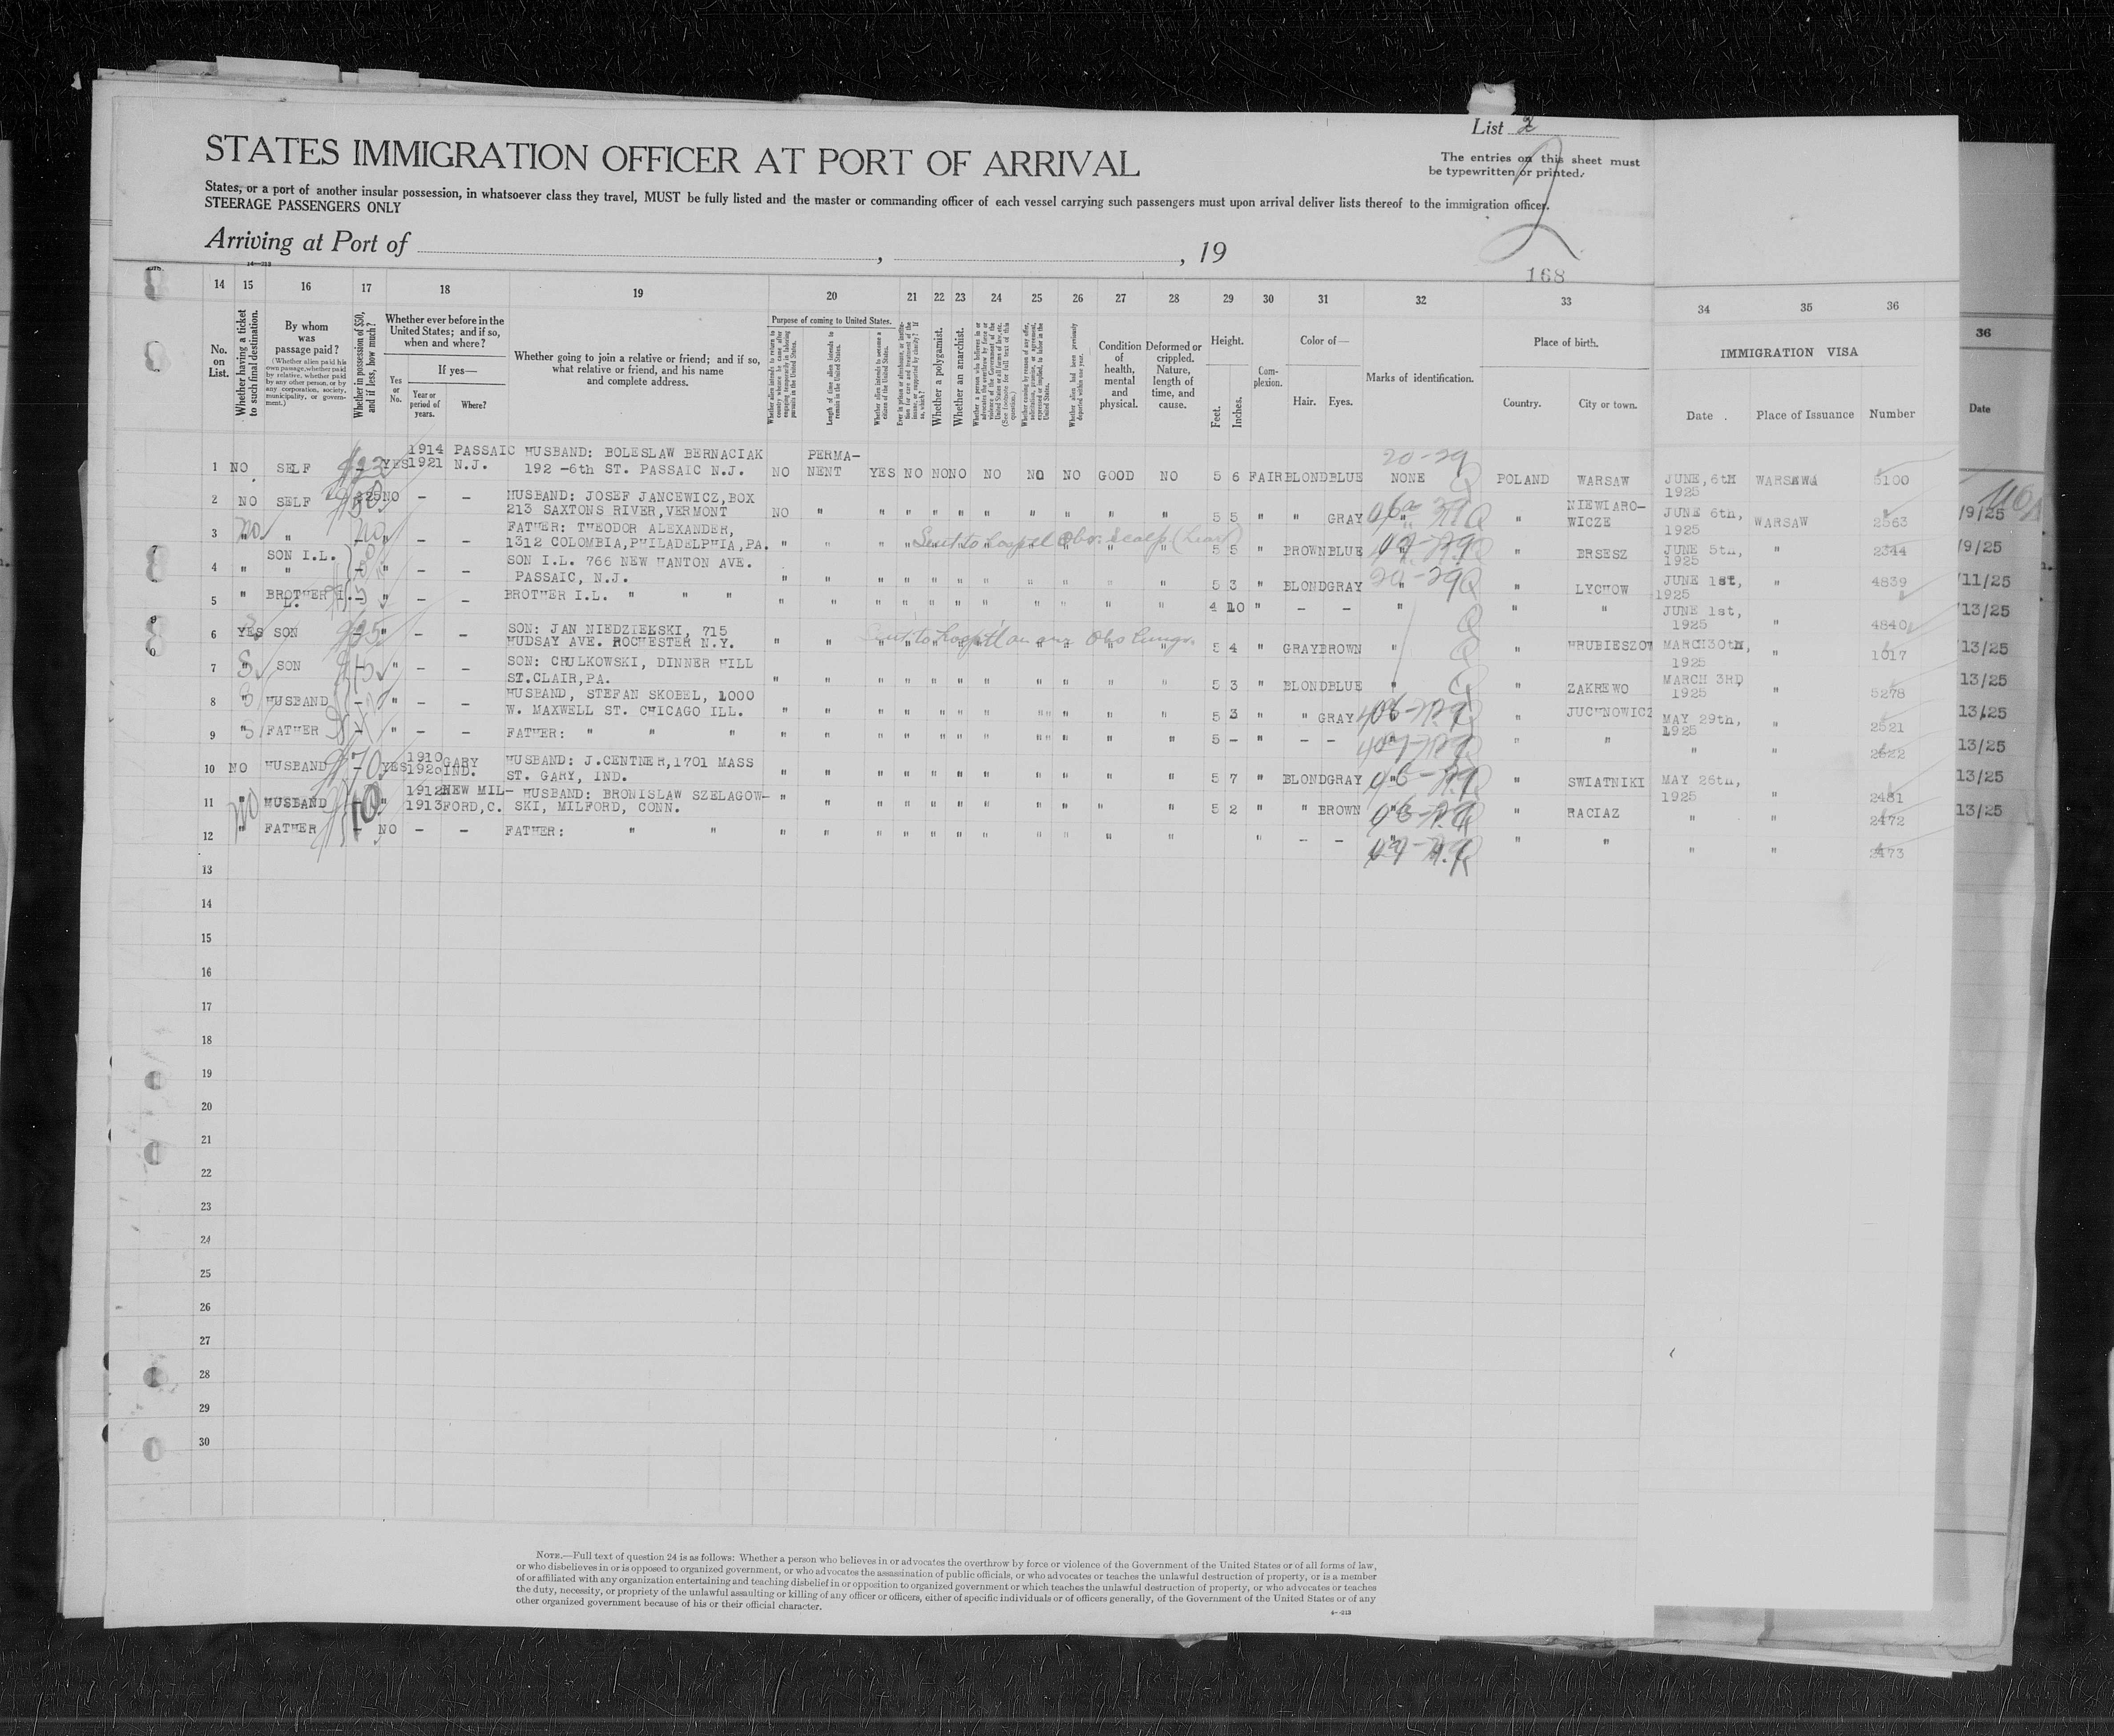 List 2
STATES IMMIGRATION OFFICER AT PORT OF ARRIVAL
The entries on this sheet must
be typewritten or printed.
States, or a port of another insular possession, in whatsoever class they travel, MUST be fully listed and the master or commanding officer of each vessel carrying such passengers must upon arrival deliver lists thereof to the immigration officer.
STEERAGE PASSENGERS ONLY
Arriving at Port of , , 19
2
168
14 15 16 17 18 19 20 21 22 23 24 25 26 27 28 29 30 31 32 33 34 35 36
No. on List.
Whether having a ticket to such final destination.
By whom was passage paid?
(Whether alien paid his own passage, whether paid by relative, whether paid by any other person, or by any corporation, society, municipality, or government.)
Whether in possession of $50, and if less, how much?
Whether ever before in the United States; and if so, when and where?
Yes or No.
If yes—
Year or period of years.
Where?
Whether going to join a relative or friend; and if so, what relative or friend, and his name and complete address.
Purpose of coming to United States.
Length of time alien intends to remain in the United States.
Whether alien intends to become a citizen of the United States.
Whether a polygamist.
Whether an anarchist.
Condition of health, mental and physical.
Deformed or crippled. Nature, length of time, and cause.
Height.
Feet. Inches.
Complexion.
Color of—
Hair. Eyes.
Marks of identification.
Place of birth.
Country. City or town.
IMMIGRATION VISA
Date Place of Issuance Number
36
Date
1 NO SELF YES 1914 1921 PASSAIC N.J. HUSBAND: BOLESLAW BERNACIAK 192 -6th ST. PASSAIC N.J. NO PERMA-NENT YES NO NO NO NO NO NO GOOD NO 5 6 FAIR BLOND BLUE NONE POLAND WARSAW JUNE, 6tH 1925 WARSAW 5100
20-29
2 NO SELF NO - - HUSBAND: JOSEF JANCEWICZ, BOX 213 SAXTONS RIVER, VERMONT NO " " " " " " " " " " 5 5 " " GRAY " " NIEWIARO-WICZE JUNE 6th, 1925 WARSAW 2563
/9/25
3 no " no " - - FATHER: THEODOR ALEXANDER, 1312 COLOMBIA, PHILADELPHIA, PA. " " " " " " " " " " " 5 5 " BROWN BLUE " " BRSESZ JUNE 5th, 1925 " 2344
Sent to hospital Obs. scalp
/9/25
4 " SON I.L. " " - - SON I.L. 766 NEW HANTON AVE. PASSAIC, N.J. " " " " " " " " " " " 5 3 " BLOND GRAY " " LYCHOW JUNE 1st, 1925 " 4839
/11/25
5 " BROTHER I.L. - - BROTHER I.L. " " " " " " " " " " " " " " 4 10 " - - " " " JUNE 1st, 1925 " 4840
/13/25
6 YES SON " - - SON: JAN NIEDZIELSKI, 715 HUDSAY AVE. ROCHESTER N.Y. " " " " " " " " " " " 5 4 " GRAY BROWN " " HRUBIESZOW MARCH 30tH, 1925 " 1017
Sent to hospital Obs lungs.
/13/25
7 " SON " - - SON: CHULKOWSKI, DINNER HILL ST.CLAIR, PA. " " " " " " " " " " " 5 3 " BLOND BLUE " " ZAKREWO MARCH 3RD 1925 " 5278
13/25
8 " HUSBAND " - - HUSBAND, STEFAN SKOBEL, 1000 W. MAXWELL ST. CHICAGO ILL. " " " " " " " " " " " 5 3 " " GRAY " JUCHNOWICZ MAY 29th, 1925 " 2521
13/25
9 " FATHER " - - FATHER: " " " " " " " " " " " " " " 5 - " - - " " " " " 2622
13/25
10 NO HUSBAND $70 YES 1910 1920 GARY IND. HUSBAND: J.CENTNER, 1701 MASS ST. GARY, IND. " " " " " " " " " " " 5 7 " BLOND GRAY " " SWIATNIKI MAY 26th, 1925 " 2481
13/25
11 " HUSBAND - " 1912 1913 NEW MIL-FORD, C. HUSBAND: BRONISLAW SZELAGOW-SKI, MILFORD, CONN. " " " " " " " " " " " 5 2 " " BROWN " RACIAZ " " 2472
13/25
12 " FATHER - NO - - FATHER: " " " " " " " " " " " " " " - - " " " " " 2473
13
14
15
16
17
18
19
20
21
22
23
24
25
26
27
28
29
30
NOTE.—Full text of question 24 is as follows: Whether a person who believes in or advocates the overthrow by force or violence of the Government of the United States or of all forms of law,
or who disbelieves in or is opposed to organized government, or who advocates the assassination of public officials, or who advocates or teaches the unlawful destruction of property, or is a member
of or affiliated with any organization entertaining and teaching disbelief in or opposition to organized government or which teaches the unlawful destruction of property, or who advocates or teaches
the duty, necessity, or propriety of the unlawful assaulting or killing of any officer or officers, either of specific individuals or of officers generally, of the Government of the United States or of any
other organized government because of his or their official character.